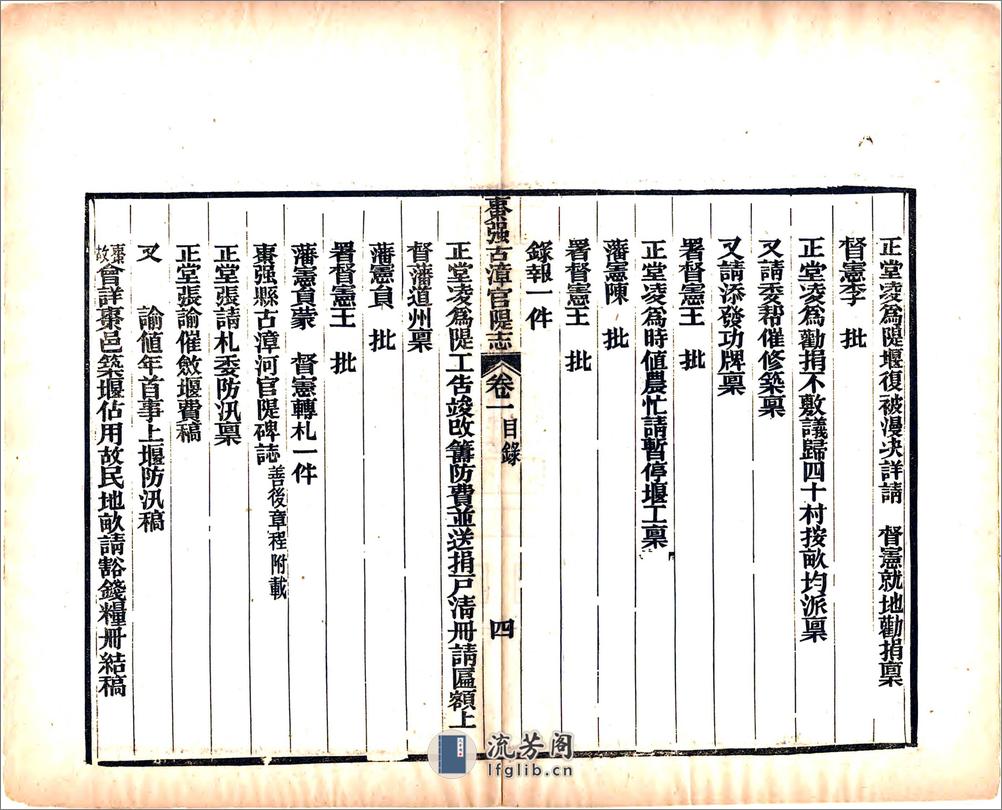 正堂凌爲隄堰復被漫决詳請　督憲就地勸捐稟
督憲李　批
正堂凌爲勸捐不敷議歸四十村按畝均派稟
又請委帮催修築稟
又請添發功牌稟
署督憲王　批
正堂凌爲時値農忙請暫停堰工稟
藩憲陳　批
署督憲王　批
錄報一件
棗强古漳官隄志　卷一　目錄　四
正堂凌爲隄工告竣改籌防費並送捐戸清冊請匾額上
督藩道州稟
藩憲貟　批
署督憲王　批
藩憲貟蒙　督憲轉札一件
棗强縣古漳河官隄碑誌　善後章程附載
正堂張請札委防汛稟
正堂張諭催斂堰費稿
又　諭値年首事上堰防汛稿
棗故會詳棗邑築堰佔用故民地畝請豁錢糧冊結稿
流芳阁
lfglib.cn